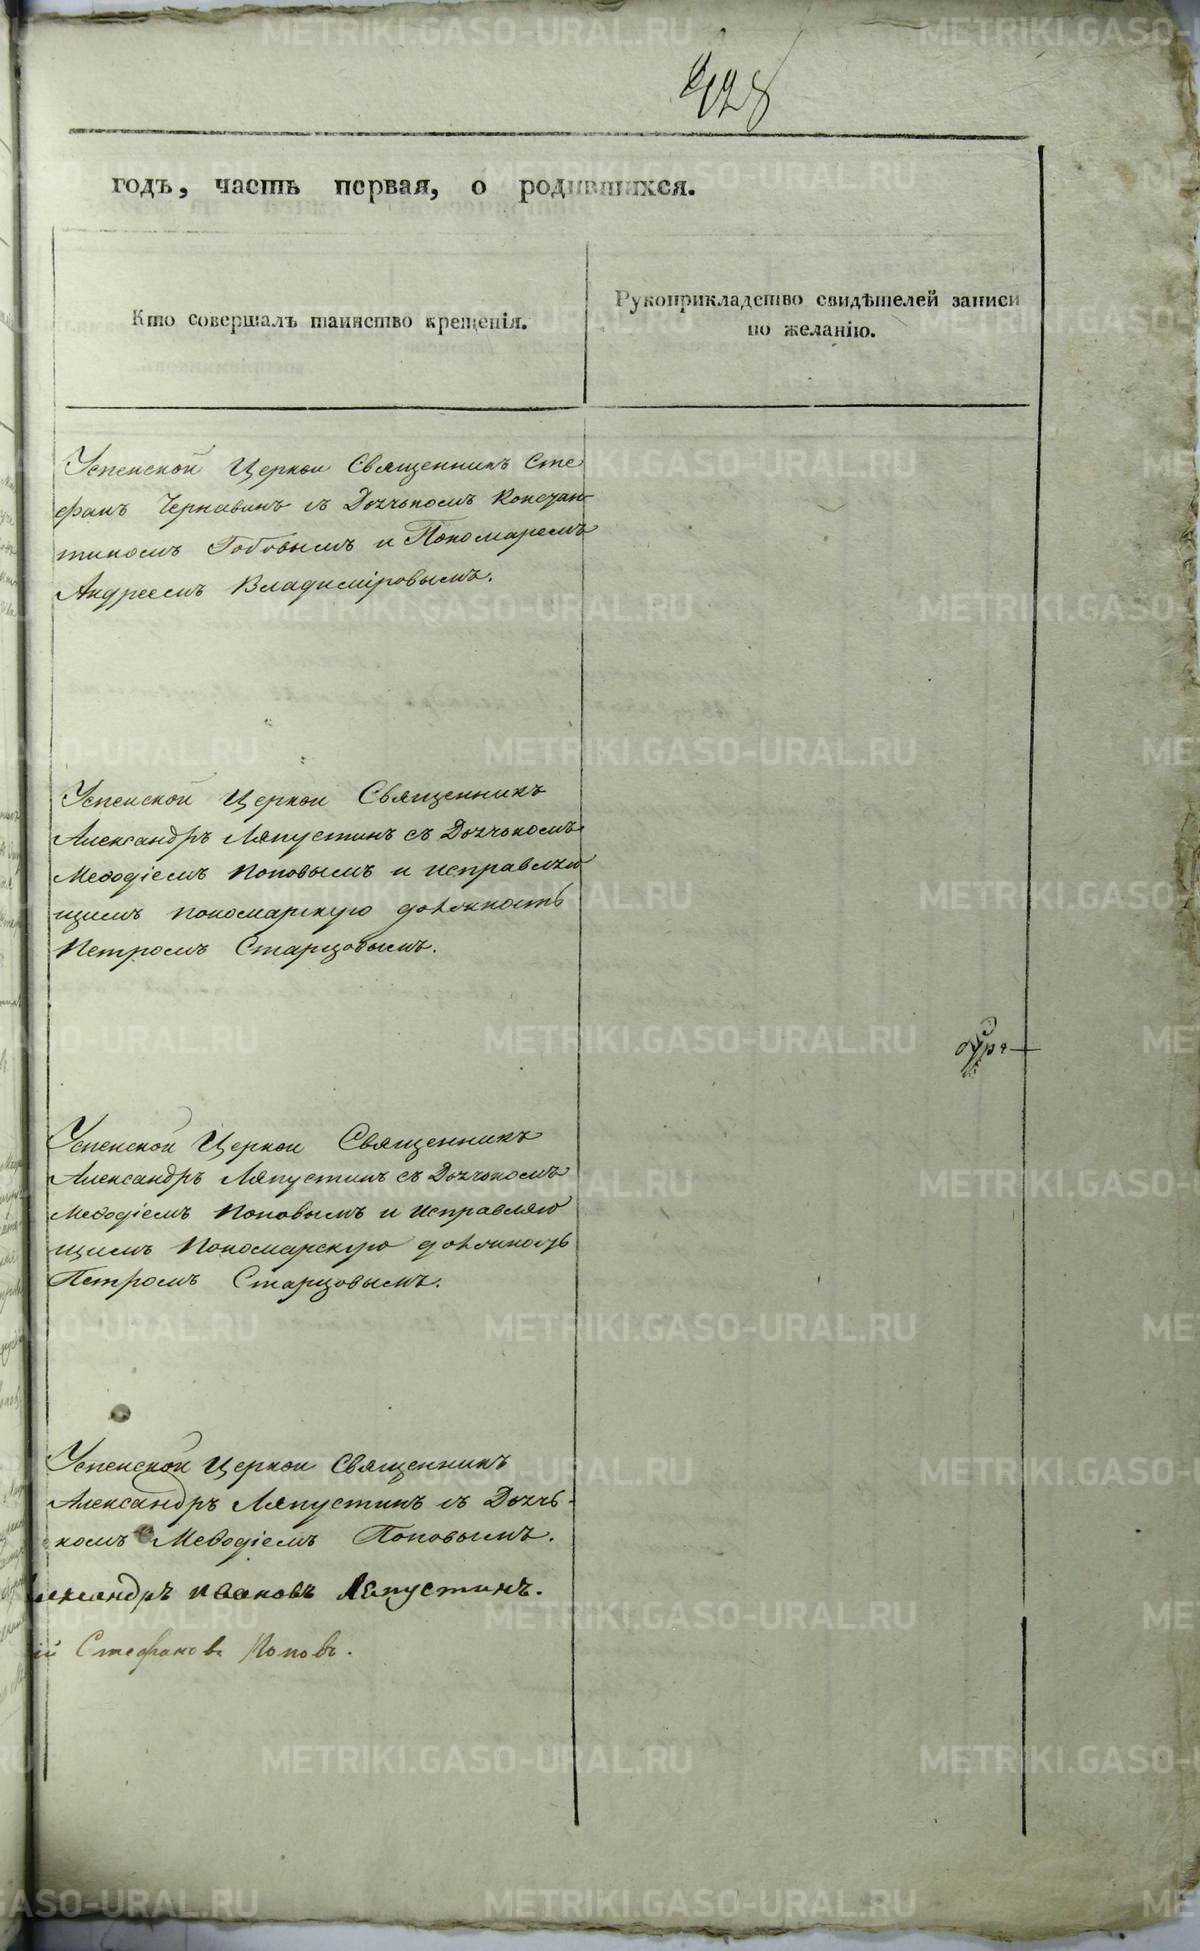 428
годъ, часть первая, о родившихся.
Кто совершалъ таинство крещенія.
Рукоприкладство свидѣтелей записи
по желанію.
Успенской Церкви Священникъ Сте
фанъ Чернавинъ съ Дьячькомъ Констан
тиномъ Гобовымъ и Пономаремъ
Андреемъ Владиміровымъ.
Успенской Церкви Священникъ
Александръ Ляпустинъ съ Дьячькомъ
Меѳодіемъ Поповымъ и исправляю
щимъ пономарскую должность
Петромъ Старцовымъ.
Успенской Церкви Священникъ
Александръ Ляпустинъ съ Дьячькомъ
Меѳодіемъ Поповымъ и исправляю
щимъ Пономарскую должность
Петромъ Старцовымъ.
Успенской Церкви Священникъ
Александръ Ляпустинъ съ Дьячь-
комъ Меѳодіемъ Поповымъ.
лександръ Ивановъ Ляпустинъ.
ій Стефановъ Поповъ.
METRIKI.GASO-URAL.RU